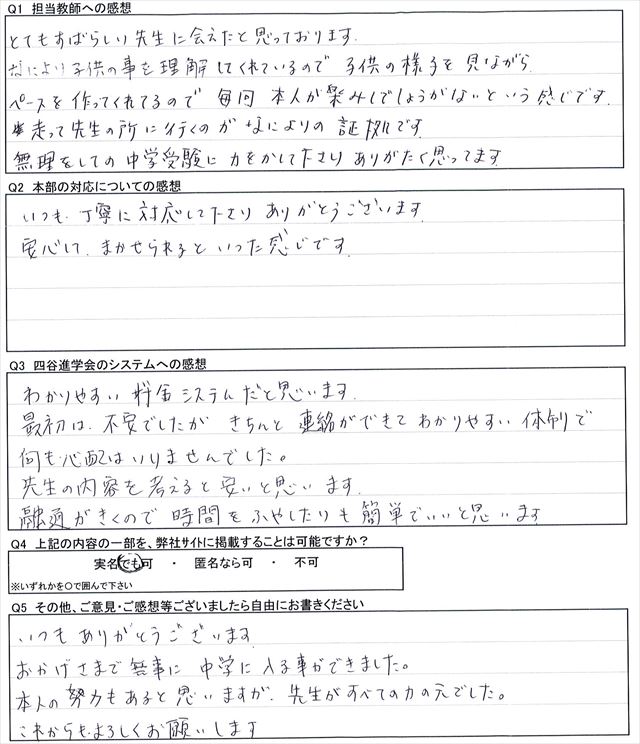 Q1 担当教師への感想
とてもすばらしい先生に会えたと思っております.
なにより子供の事を理解してくれているので 子供の様子を見ながら
ペースを作ってくれてるので 毎回 本人が楽みしでしょうがないという感じです.
走って先生の所に行くのがなによりの証拠です.
無理をしての中学受験に力をかして下さり ありがたく思ってます
Q2 本部の対応についての感想
いつも.丁寧に対応して下さり ありがとうございます.
安心して.まかせられるといった感じです.
Q3 四谷進学会のシステムへの感想
わかりやすい料金システムだと思います.
最初は.不安でしたが きちんと連絡ができて わかりやすい体制で
何も心配はいりませんでした。
先生の内容を考えると安いと思います.
融通がきくので時間をふやしたりも簡単でいいと思います
Q4 上記の内容の一部を、弊社サイトに掲載することは可能ですか?
実名でも可 ・ 匿名なら可 ・ 不可
※いずれかを○で囲んで下さい
Q5 その他、ご意見・ご感想等ございましたら自由にお書きください
いつもありがとうございます.
おかげさまで無事に中学に入る事ができました。
本人の努力もあると思いますが.先生がすべての力の元でした。
これからも.よろしくお願いします